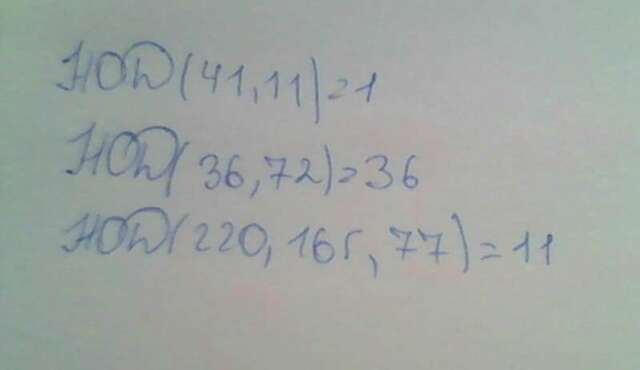 НОД(41,11)=1
НОД(36,72)=36
НОД(220,165,77)=11